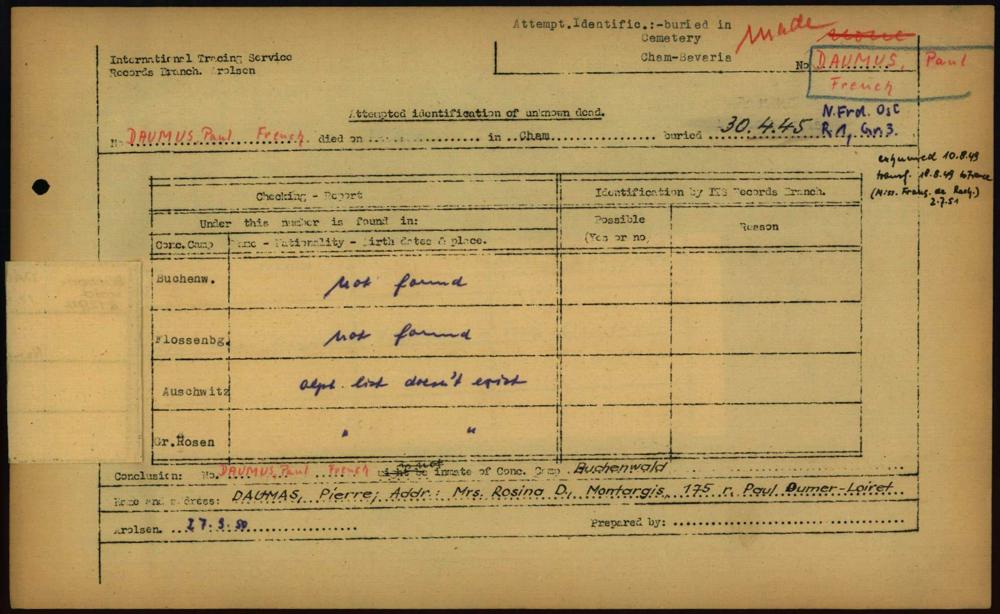 Attempt.Identific.:-buried in
Cemetery
Cham-Bavaria
made
none
No DAUMUS, Paul
French
N.Frd. Osc
R 1, Gr. 3.
International Tracing Service
Records Branch. Arolsen
Attempted identification of unknown dead.
No DAUMUS, Paul French died on in Cham. buried 30.4.45
exhumed 10.8.49
transf. 18.8.49 to France
(Miss. Franç. de Rech.)
2.7.51
Checking - Report
Identification by ITS Records Branch.
Under this number is found in:
Possible
(Yes or no)
Reason
Conc.Camp Name - Nationality - Birth dates & place.
Buchenw. not found
Flossenbg. not found
Auschwitz alph. list doesn't exist
Gr.Rosen " "
Conclusion: No. DAUMUS, Paul French might be inmate of Conc. Camp Buchenwald
Name and address: DAUMAS, Pierre, Addr.: Mrs. Rosina D., Montargis, 175 r. Paul Dumer-Loiret
Arolsen. 27.9.50
Prepared by: